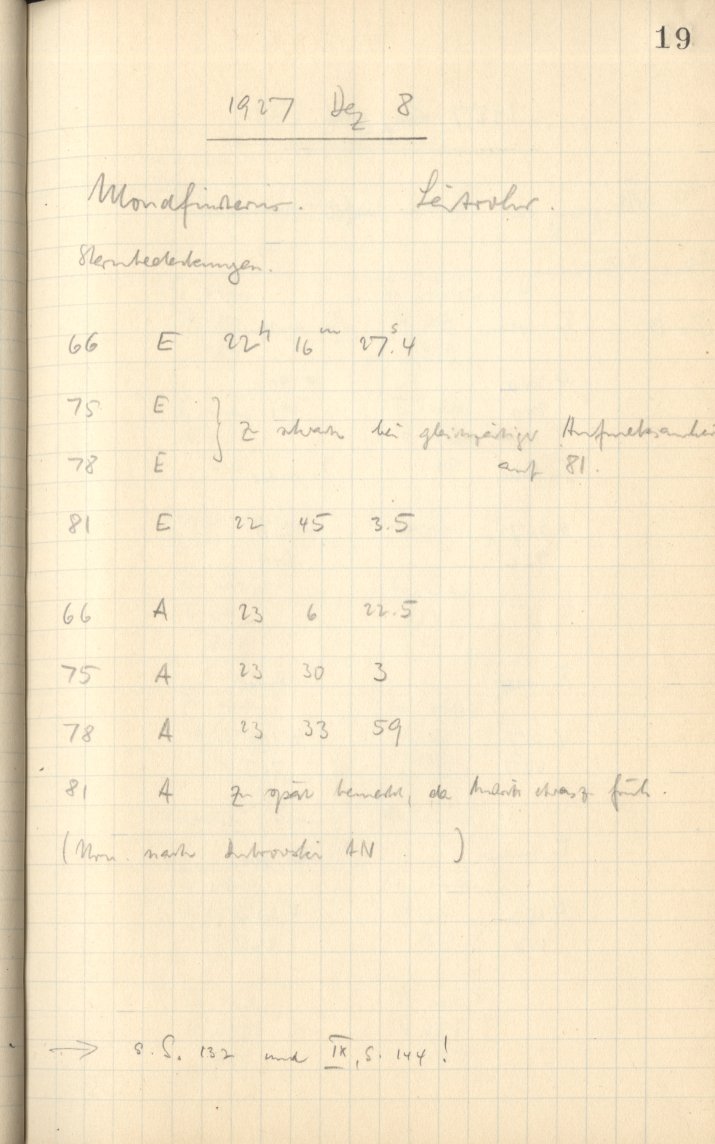 19
1927 Dez 8
Mondfinsternis. Leitrohr.
Sternbedeckungen.
66 E 22h 16m 27s.4
75 E
} Zu schwach bei gleichzeitiger Aufmerksamkei
78 E auf 81.
81 E 22 45 3.5
66 A 23 6 22.5
75 A 23 30 3
78 A 23 33 59
81 A Zu spät bemerkt, da etwas zu früh.
( nach AN )
→ s. S. 132 und IX, S. 144!